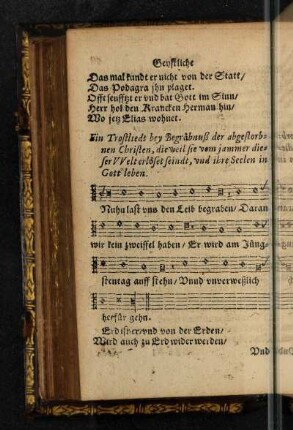 Geystliche
Das mal kundt er nicht von der Statt/
Das Podagra jhn plaget.
Offt seufftzt er vnd bat Gott im Sinn/
Herr hol den Krancken Herman hin/
Wo jetz Elias wohnet.
Ein Trostliedt bey Begräbnuß der abgestorbe-
nen Christen, dieweil sie vom jammer die-
ser VVelt erlöset seindt, vnd ihre Seelen in
Gott leben.
Nuhn last vns den Leib begraben/ Daran
wir kein zweiffel haben/ Er wird am Jüng-
stentag auff stehn/ Vnnd vnverweßlich
herfür gehn.
Erd ist er/ vnd von der Erden/
Wird auch zu Erd wider werden/
Vnd